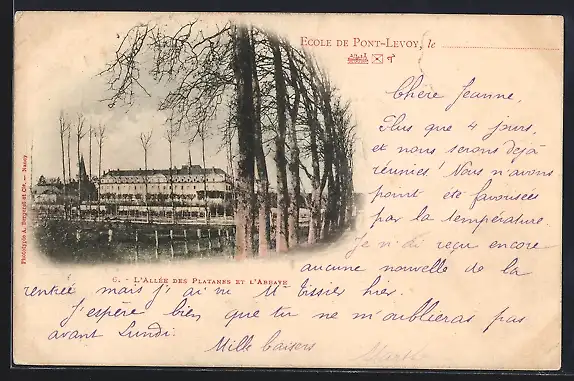 ECOLE DE PONT-LEVOY, le
Chère Jeanne,
Plus que 4 jours,
et nous serons déjà
réunies! Nous n'avons
point été favorisées
par la température.
Je n'ai reçu encore
aucune nouvelle de la
6. - L'ALLÉE DES PLATANES ET L'ABBAYE
rentrée mais j'ai vu Mr Tissier hier.
J'espère bien que tu ne m'oublieras pas
avant Lundi. Mille baisers
Marthe
Phototypie A. Bergeret et Cie. — Nancy